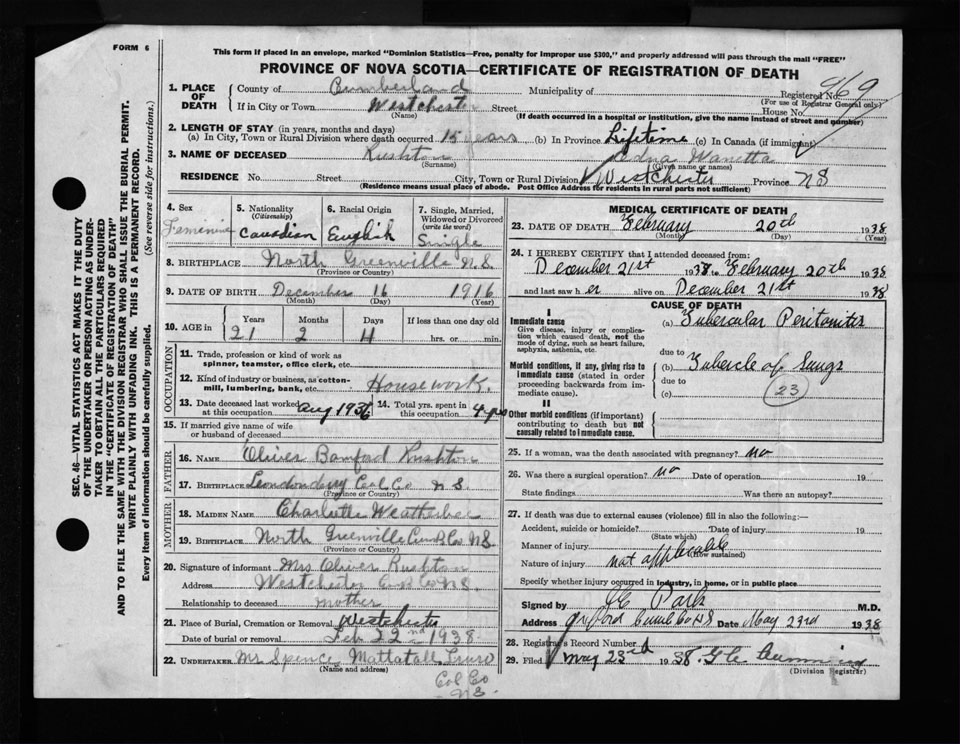 FORM 6
This form if placed in an envelope, marked "Dominion Statistics—Free, penalty for improper use $300," and properly addressed will pass through the mail "FREE"
PROVINCE OF NOVA SCOTIA—CERTIFICATE OF REGISTRATION OF DEATH
1. PLACE OF DEATH
County of Cumberland Municipality of Registered No. 469
(For use of Registrar General only)
If in City or Town Westchester Street House No.
(Name) (If death occurred in a hospital or institution, give the name instead of street and number)
2. LENGTH OF STAY (in years, months and days)
(a) In City, Town or Rural Division where death occurred 15 years (b) In Province Lifetime (c) In Canada (if immigrant)
3. NAME OF DECEASED Rushton Edna Wanetta
(Surname) (Given name or names)
RESIDENCE No. Street City, Town or Rural Division Westchester Province NS
(Residence means usual place of abode. Post Office Address for residents in rural parts not sufficient)
4. Sex 5. Nationality (Citizenship) 6. Racial Origin 7. Single, Married, Widowed or Divorced (write the word)
Feminine Canadian English Single
8. BIRTHPLACE North Greenville N.S.
(Province or Country)
9. DATE OF BIRTH December 16 1916
(Month) (Day) (Year)
10. AGE in Years Months Days If less than one day old
21 2 4 hrs. or min.
OCCUPATION
11. Trade, profession or kind of work as spinner, teamster, office clerk, etc.
12. Kind of industry or business, as cotton-mill, lumbering, bank, etc. Housework.
13. Date deceased last worked at this occupation Aug 1936 14. Total yrs. spent in this occupation 4 yrs
15. If married give name of wife or husband of deceased
FATHER
16. NAME Oliver Bamford Rushton
17. BIRTHPLACE Londonderry Col. Co N S.
(Province or Country)
MOTHER
18. MAIDEN NAME Charlotte Weatherbee
19. BIRTHPLACE North Greenville Cumb. Co NS
(Province or Country)
20. Signature of informant Mrs Oliver Rushton
Address Westchester Cumb Co N S.
Relationship to deceased mother
21. Place of Burial, Cremation or Removal Westchester
Date of burial or removal Feb 22nd 1938
22. UNDERTAKER Mr Spence Mattatall Truro
(Name and address)
Col Co
N S.
MEDICAL CERTIFICATE OF DEATH
23. DATE OF DEATH February 20th 1938
(Month) (Day) (Year)
24. I HEREBY CERTIFY that I attended deceased from:
December 21st 1938 to February 20th 1938
and last saw her alive on December 21st 1938
CAUSE OF DEATH
I
Immediate cause
Give disease, injury or complication which caused death, not the mode of dying, such as heart failure, asphyxia, asthenia, etc.
(a) Tubercular Peritonitis
due to
Morbid conditions, if any, giving rise to immediate cause (stated in order proceeding backwards from immediate cause).
(b) Tubercle of Lungs
due to
(c) 23
II
Other morbid conditions (if important) contributing to death but not causally related to immediate cause.
25. If a woman, was the death associated with pregnancy? No
26. Was there a surgical operation? No Date of operation 19
State findings Was there an autopsy?
27. If death was due to external causes (violence) fill in also the following:—
Accident, suicide or homicide? Date of injury 19
(State which)
Manner of injury
(How sustained)
Nature of injury not applicable
Specify whether injury occurred in industry, in home, or in public place
Signed by Park M.D.
Address Oxford Cumb Co NS Date May 23rd 1938
28. Registrar's Record Number
29. Filed May 23rd 1938. G. C. Cumming
(Division Registrar)
SEC. 46—VITAL STATISTICS ACT MAKES IT THE DUTY
OF THE UNDERTAKER OR PERSON ACTING AS UNDER-
TAKER TO OBTAIN ALL THE PARTICULARS REQUIRED
IN THE "CERTIFICATE OF REGISTRATION OF DEATH"
AND TO FILE THE SAME WITH THE DIVISION REGISTRAR WHO SHALL ISSUE THE BURIAL PERMIT.
WRITE PLAINLY WITH UNFADING INK. THIS IS A PERMANENT RECORD.
Every item of information should be carefully supplied. (See reverse side for instructions.)